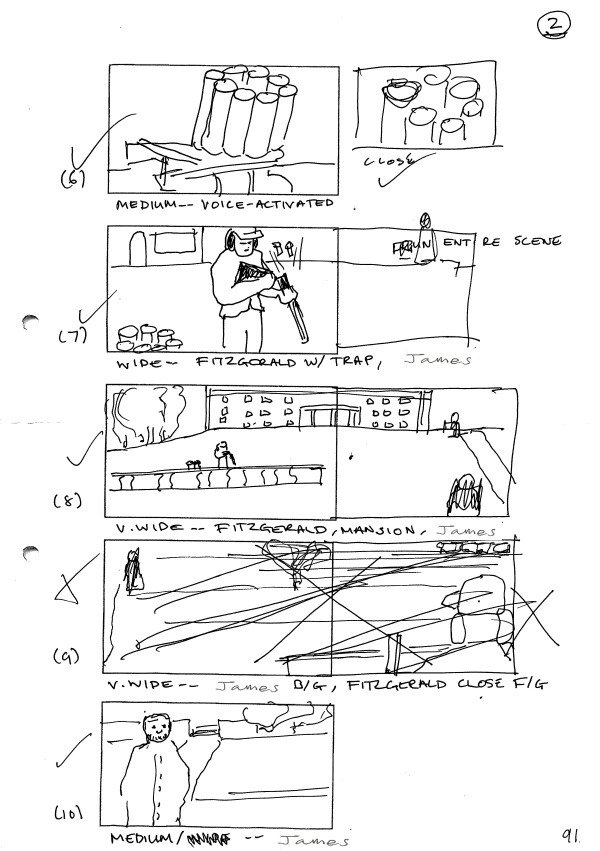 2
(6)
MEDIUM -- VOICE-ACTIVATED
CLOSE
RUN ENTIRE SCENE
(7)
WIDE -- FITZGORALD W/ TRAP, James
(8)
V. WIDE -- FITZGERALD, MANSION, James
(9)
V. WIDE -- James B/G, FITZGERALD CLOSE F/G
(10)
MEDIUM/ -- James
91